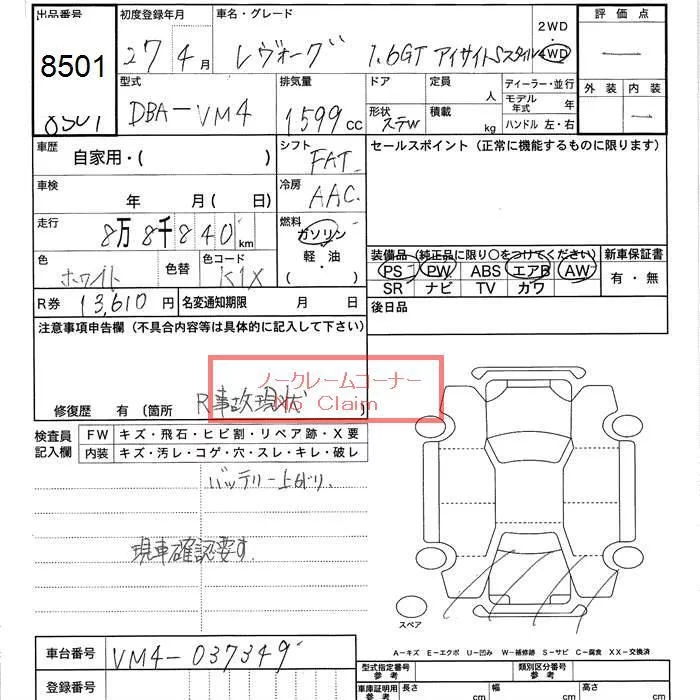 出品番号 初度登録年月 車名・グレード 2WD 評価点
8501 27 4月 レヴォーグ 1.6GT アイサイトSスタイル 4WD —
型式 排気量 ドア 定員 ディーラー・並行 外装 内装
DBA-VM4 1599cc 人 モデル年式 年 —
形状 ステW 積載 kg ハンドル 左・右
車歴 自家用・( ) シフト FAT セールスポイント (正常に機能するものに限ります)
車検 年 月 ( 日) 冷房 AAC
走行 8万8千840km 燃料 ガソリン
軽・油
( )
装備品 (純正品に限り○をつけてください) 新車保証書
色 ホワイト 色替 色コード K1X PS PW ABS エアB AW 有・無
SR ナビ TV カワ
R券 13,610円 名変通知期限 月 日 後日品
注意事項申告欄 (不具合内容等は具体的に記入して下さい)
ノークレームコーナー
No Claim
修復歴 有 (箇所 R事故現状 )
検査員記入欄 FW キズ・飛石・ヒビ割・リペア跡・X要
内装 キズ・汚レ・コゲ・穴・スレ・キレ・破レ
バッテリー上がり.
現車確認要す.
スペア
A-キズ E-エクボ U-凹み W-補修跡 S-サビ C-腐食 XX-交換済
車台番号 VM4-037349 型式指定番号 参考 類別区分番号 参考
登録番号 車庫証明用 参考 長さ cm 幅 cm 高さ cm